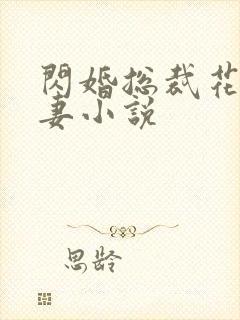 閃婚總裁花
妻小說
思齡